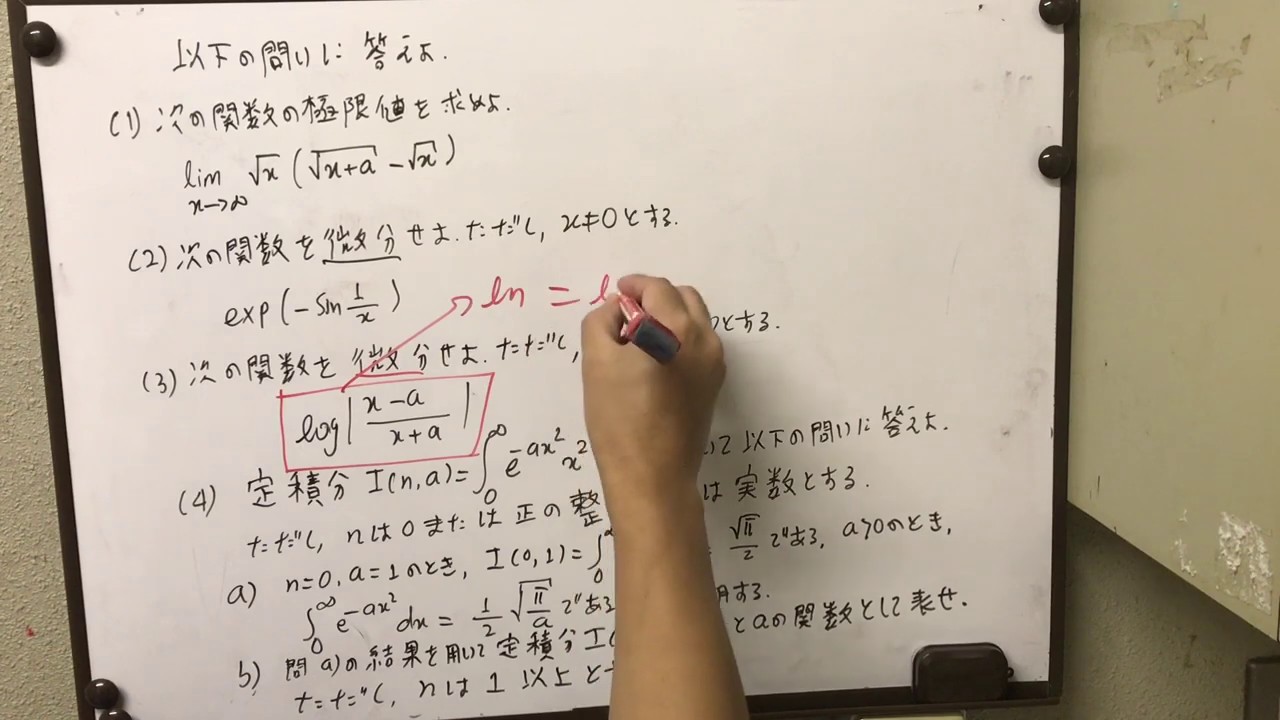 以下の問いに答えよ.
(1) 次の関数の極限値を求めよ.
lim x→∞ √x (√x+a - √x)
(2) 次の関数を微分せよ. ただし, x≠0とする.
exp(-sin 1/x)
ln = l
(3) 次の関数を微分せよ. ただし, とする.
log| x-a / x+a |
(4) 定積分 I(n,a)=∫0^∞ e^-ax² x² いて以下の問いに答えよ.
ただし, nは0または正の整 は実数とする.
a) n=0, a=1のとき, I(0,1)=∫0^∞ = √π/2 である. a>0のとき,
∫0^∞ e^-ax² dx = 1/2 √π/a である 明する.
b) 問a)の結果を用いて定積分I( とaの関数として表せ.
ただし, nは1以上と